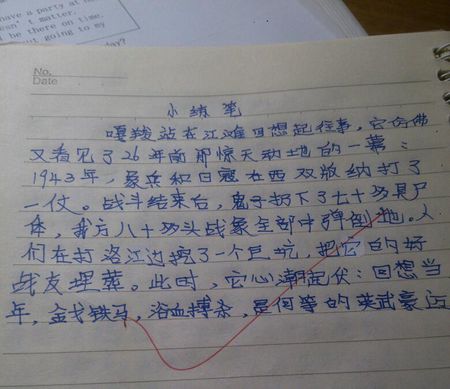 have a party at
esn't matter.
d be there on time.
out going to my
day?
No.
Date
小练笔
嘎羧站在江滩回想起往事，它仿佛
又看见了26年前那惊天动地的一幕：
1943年，象兵和日寇在西双版纳打了
一仗。战斗结束后，鬼子扔下了七十多具尸
体，我方八十多头战象全部中弹倒地。人
们在打洛江边挖了一个巨坑，把它的好
战友埋葬。此时，它心潮起伏：回想当
年，金戈铁马，浴血搏杀，是何等的英武豪迈